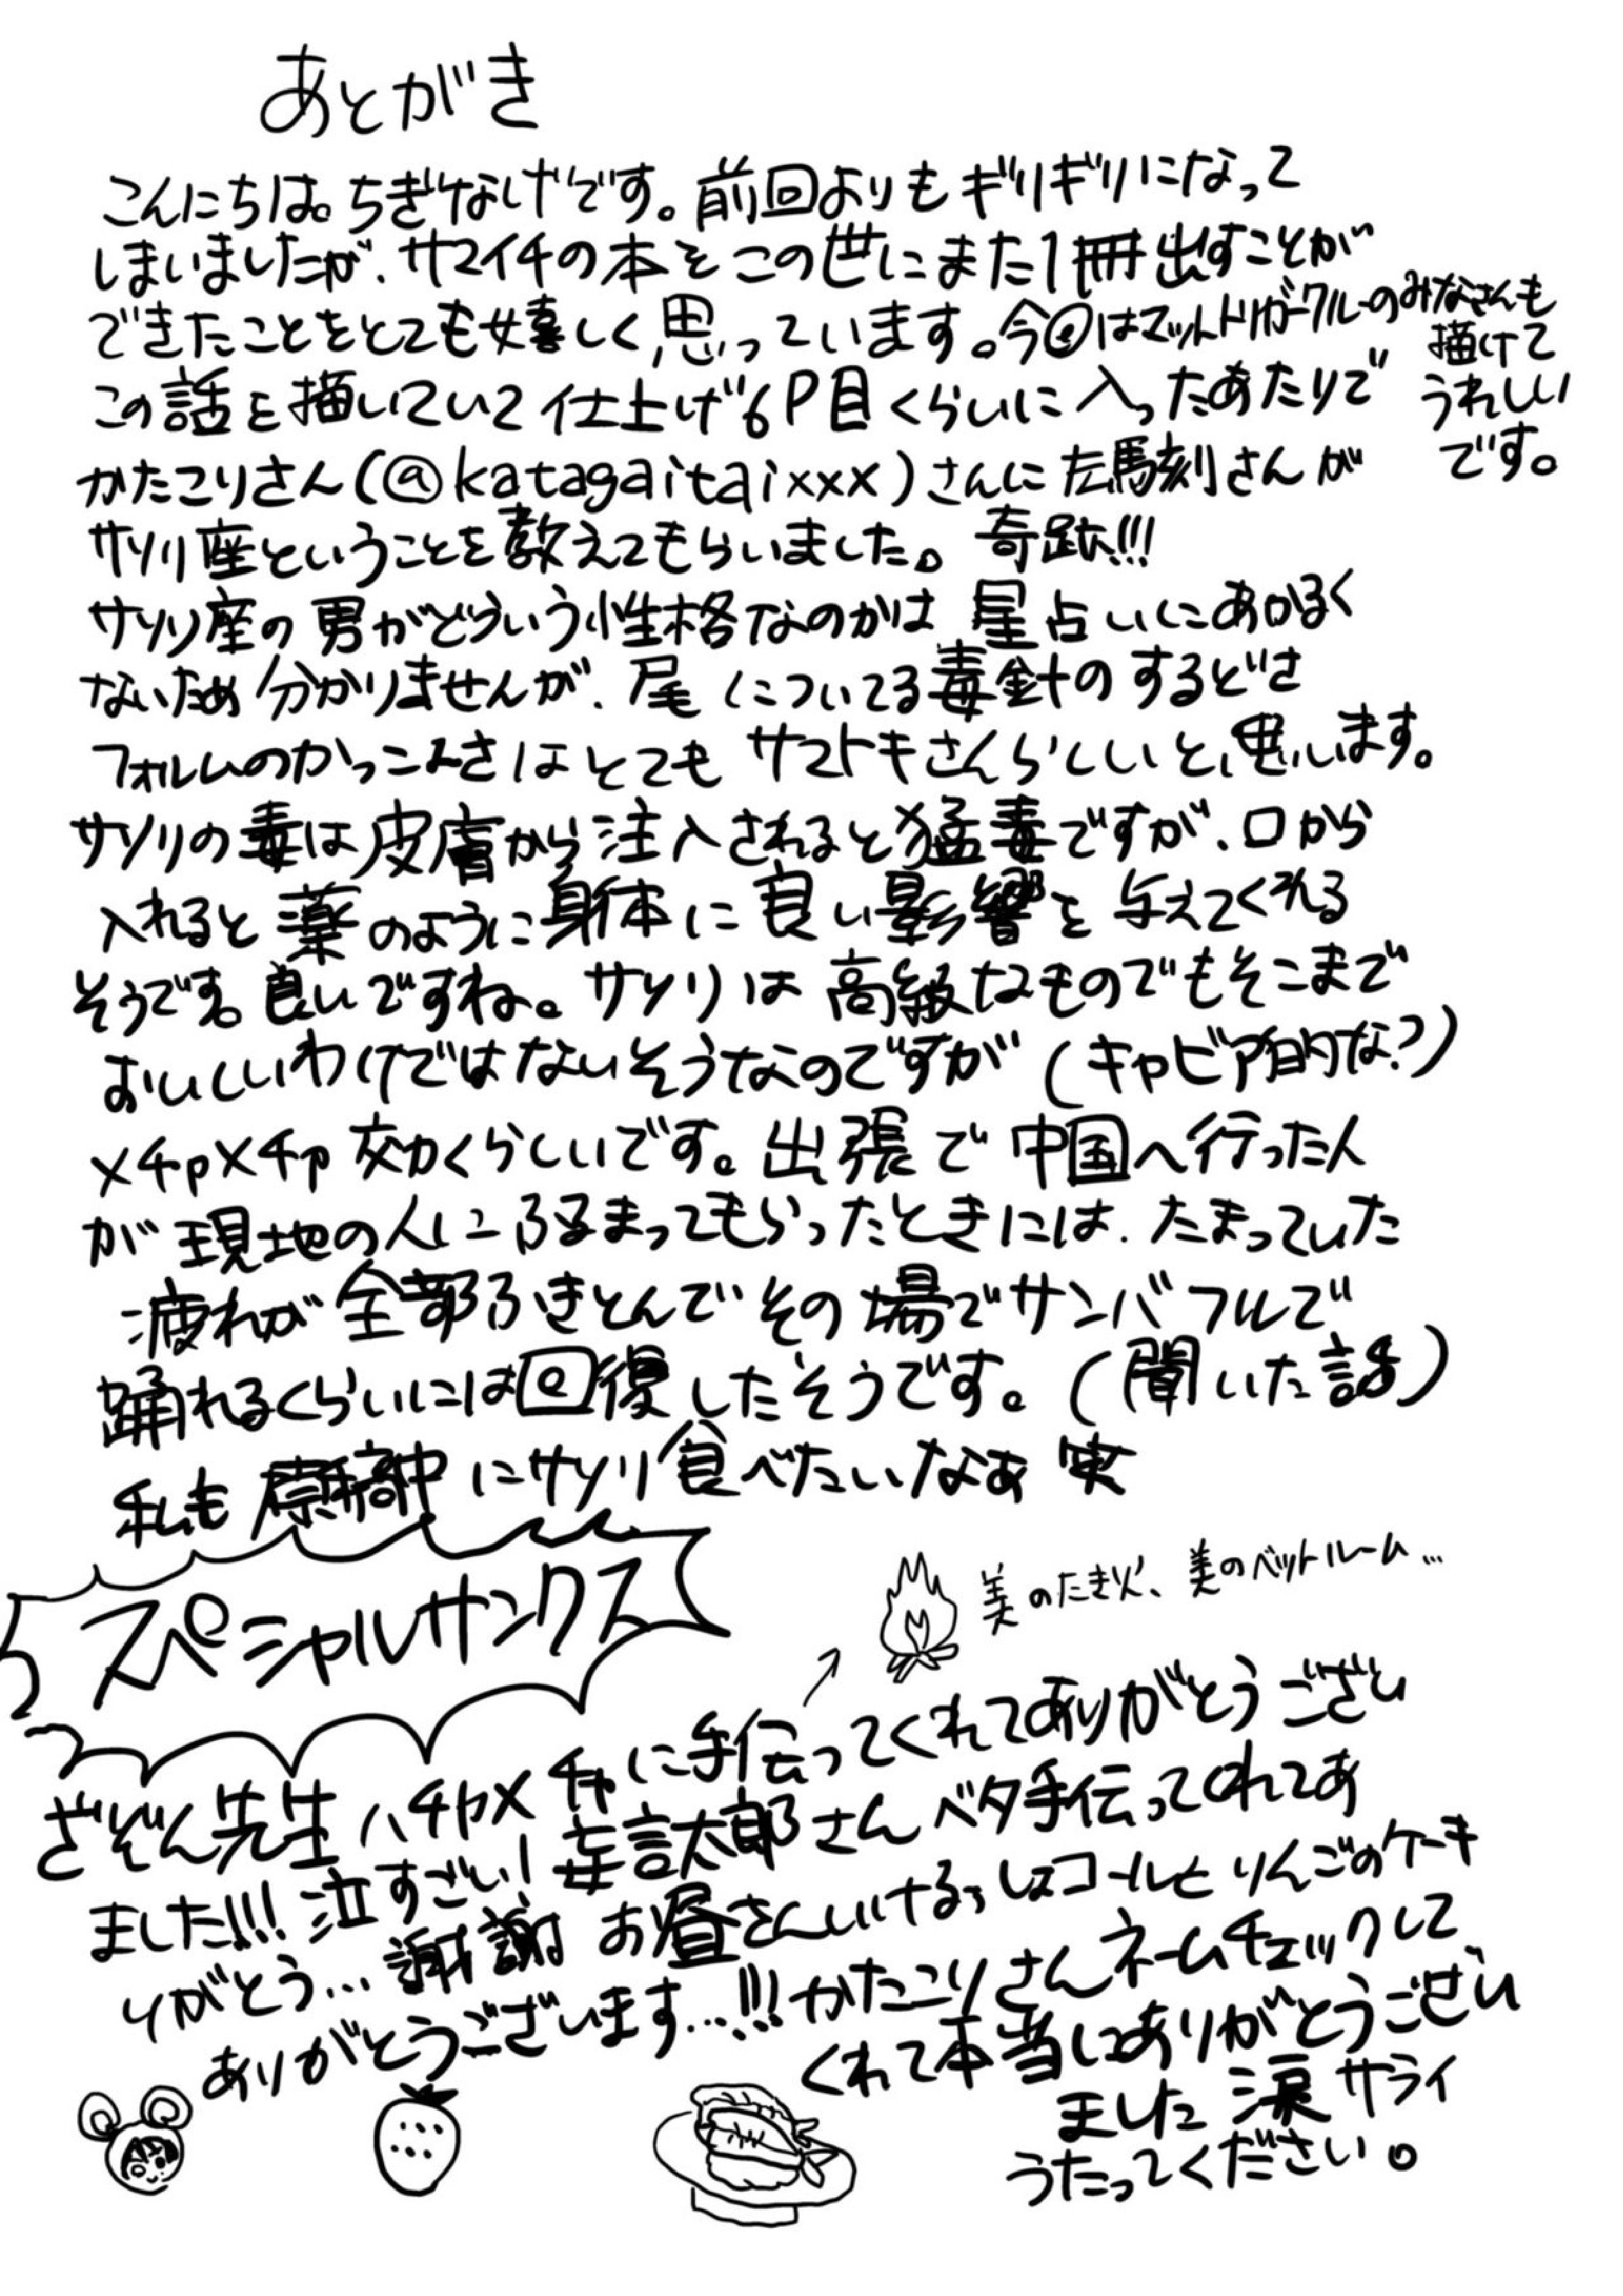 あとがき
こんにちは。ちぎなげです。前回よりもギリギリになって
しまいましたが、サマイチの本をこの世にまた1冊出すことが
できたことをとても嬉しく思っています。今回はマットリガークルーのみなさんも
描けて
うれしい
です。
この話を描いていて仕上げ6P目くらいに入ったあたりで
かたこりさん(@katagaitaixxx)さんに左馬刻さんが
サソリ座ということを教えてもらいました。奇跡!!!
サソリ座の男がどういう性格なのかは星占いにあかるく
ないため分かりませんが、尾についてる毒針のするどさ
フォルムのかっこよさはとてもサマトキさんらしいと思います。
サソリの毒は皮膚から注入されると猛毒ですが、口から
入れると薬のように身体に良い影響を与えてくれる
そうです。良いですね。サソリは高級なものでもそこまで
おいしいわけではないそうなのですが(キャビア的な?)
メチャメチャ効くらしいです。出張で中国へ行った人
が現地の人にふるまってもらったときには、たまっていた
疲れが全部ふきとんでその場でサンバフルで
踊れるくらいには回復したそうです。(聞いた話)
私も原稿中にサソリ食べたいなぁ 笑
スペシャルサンクス
美のたき火、美のベットルーム…
ざぞん先生ハチャメチャに手伝ってくれてありがとうござい
ました!!!泣すごい!妄言太郎さんベタ手伝ってくれてあ
りがとう…謝謝 お昼さん コールとりんごのケーキ
ありがとうございます…!!!かたこりさんネームチェックして
くれて本当にありがとうござい
ました 涙 サライ
うたってください。